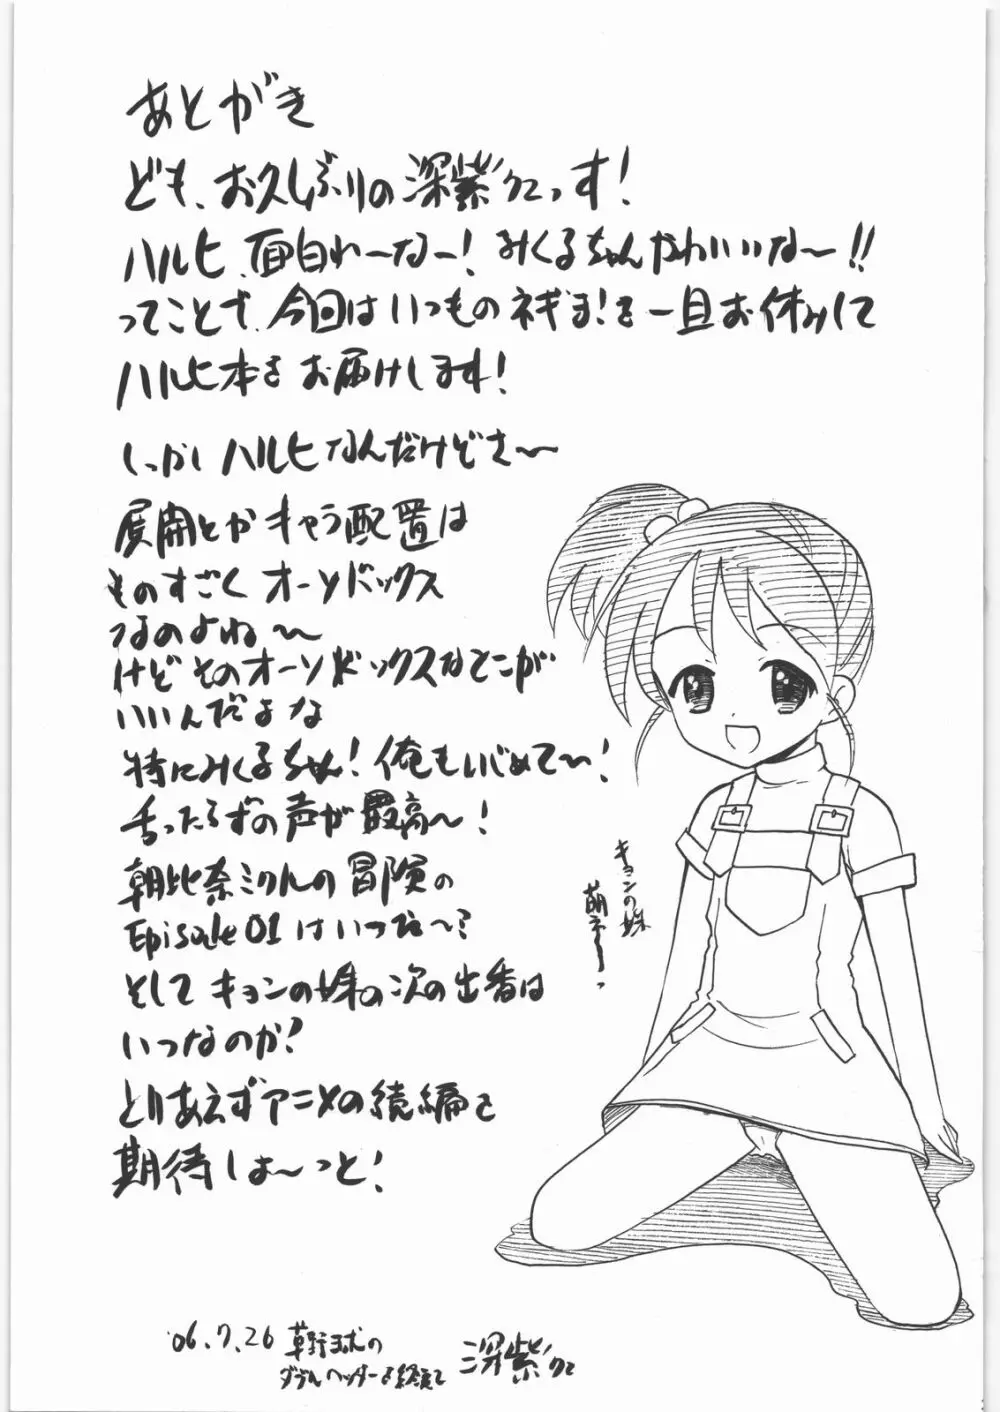 あとがき
ども、お久しぶりの深紫クっす!
ハルヒ、面白れーなー!みくるちゃんかわいいな〜!!
ってことで、今回はいつものネギま!を一旦お休みして
ハルヒ本をお届けします!
しっかしハルヒなんだけどさ〜
展開とかキャラ配置は
ものすごくオーソドックス
なのよね〜
けどそのオーソドックスなとこが
いいんだよな
特にみくるちゃん!俺もいじめて〜!
舌ったらずの声が最高〜!
朝比奈ミクルの冒険の
Episode 01はいつだ〜?
そしてキョンの妹の次の出番は
いつなのか?
とりあえずアニメの続編を
期待しょ〜っと!
キョンの妹
萌えーっ
'06.7.26 草野球の
ダブルヘッダーを終えて
深紫